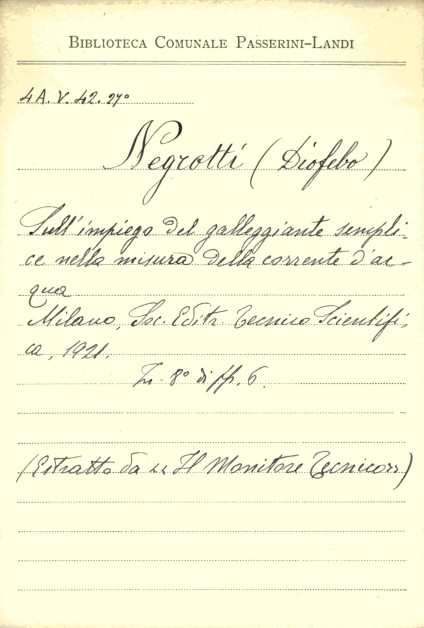 BIBLIOTECA COMUNALE PASSERINI-LANDI
4A. V. 42. 27°
Negrotti (Diofebo)
Sull'impiego del galleggiante sempli-
ce nella misura della corrente d'ac-
qua
Milano, Soc. Editr Tecnico Scientifi,
ca, 1921.
In 8° di pp. 6.
(Estratto da "Il Monitore Tecnico")